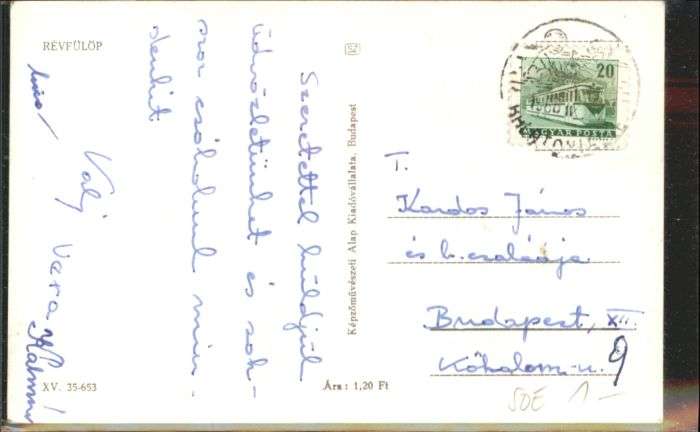 RÉVFÜLÖP
Szeretettel küldjük
üdvözletünket és sok-
szor csókolunk min-
denkit
Vali Vera Kálmán
Képzőművészeti Alap Kiadóvállalata, Budapest
XV. 35-653
Ára: 1,20 Ft
20
MAGYAR POSTA
T.
Kardos János
és b. családja
Budapest, XII.
Kőhalom-u. 9
50E 1-